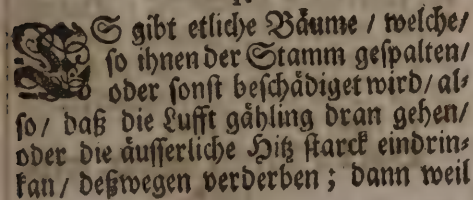 ES gibt etliche Bäume / welche /
so ihnen der Stamm gespalten /
oder sonst beschädiget wird / al-
so / daß die Lufft gähling dran gehen /
oder die äusserliche Hitz starck eindrin-
kan / deßwegen verderben ; dann weil